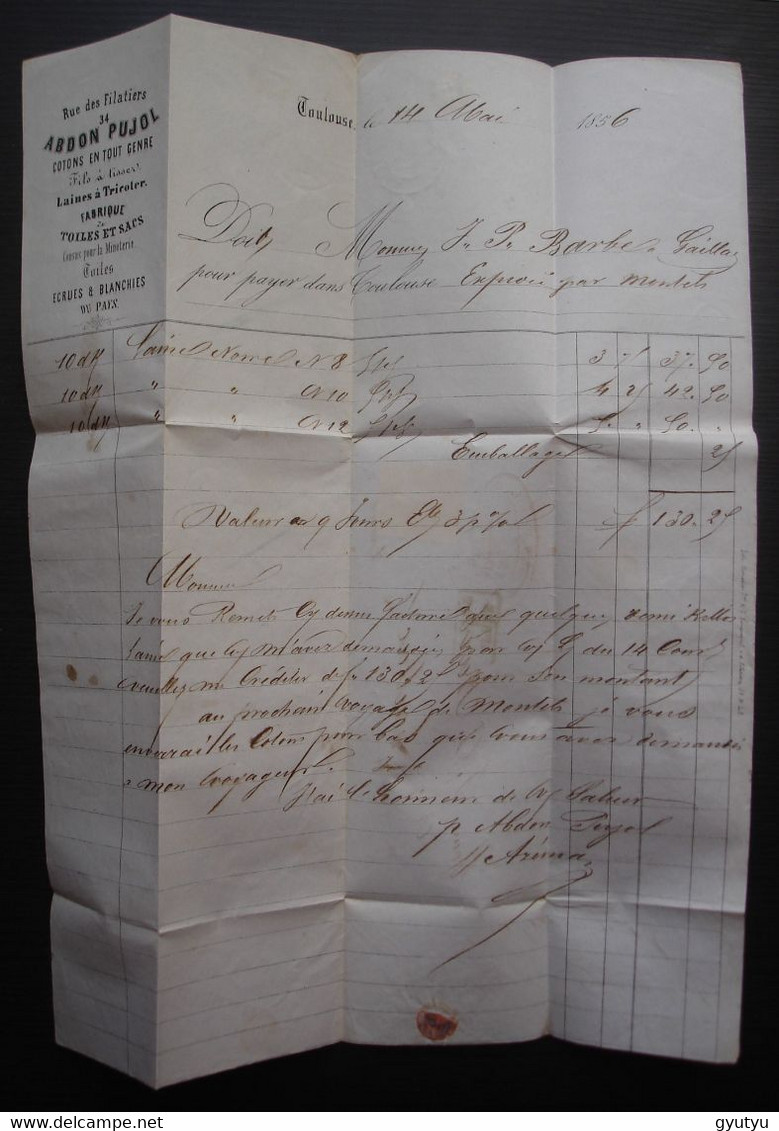 Rue des Filatiers
34
ABDON PUJOL
COTONS EN TOUT GENRE
Fils à tisser
Laines à Tricoter.
FABRIQUE
de
TOILES ET SACS
Cousus pour la Minoterie.
Toiles
ECRUES & BLANCHIES
DU PAYS.
Toulouse, le 14 Mai 1856
Doit Monsieur J. P. Barbe a Gailla
pour payer dans Toulouse par Montels
10 Laine N 8 3 75 37.50
10 " " N 10 4 25 42.50
10 " " N 12 5 " 50 "
Emballage 25
Valeur a 9 jours 3 p% f 130.25
Monsieur
Je vous Remets Cy dessus facture quelques demi Killos
laine que m'avez demandés par du 14 Cour
veuillez me Créditer de f 130.25 pour son montant
au prochain voyage de Montels je vous
enverrai les Cotons pour bas que vous avez demandés
a mon voyageur.
J'ai l'honneur de Saluer
p. Abdon Pujol
gyutyu